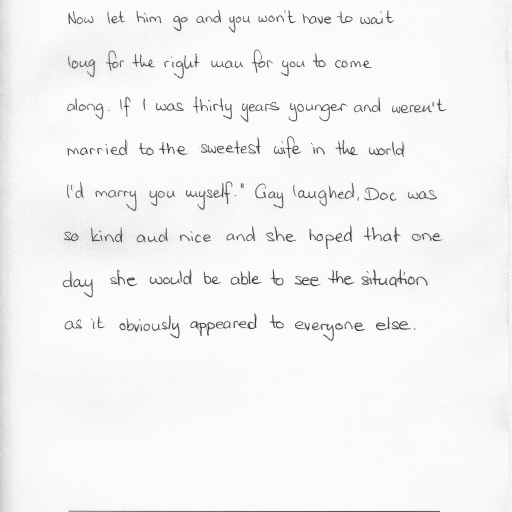 Now let him go and you won't have to wait
long for the right man for you to come
along. If I was thirty years younger and weren't
married to the sweetest wife in the world
I'd marry you myself." Gay laughed, Doc was
so kind and nice and she hoped that one
day she would be able to see the situation
as it obviously appeared to everyone else.